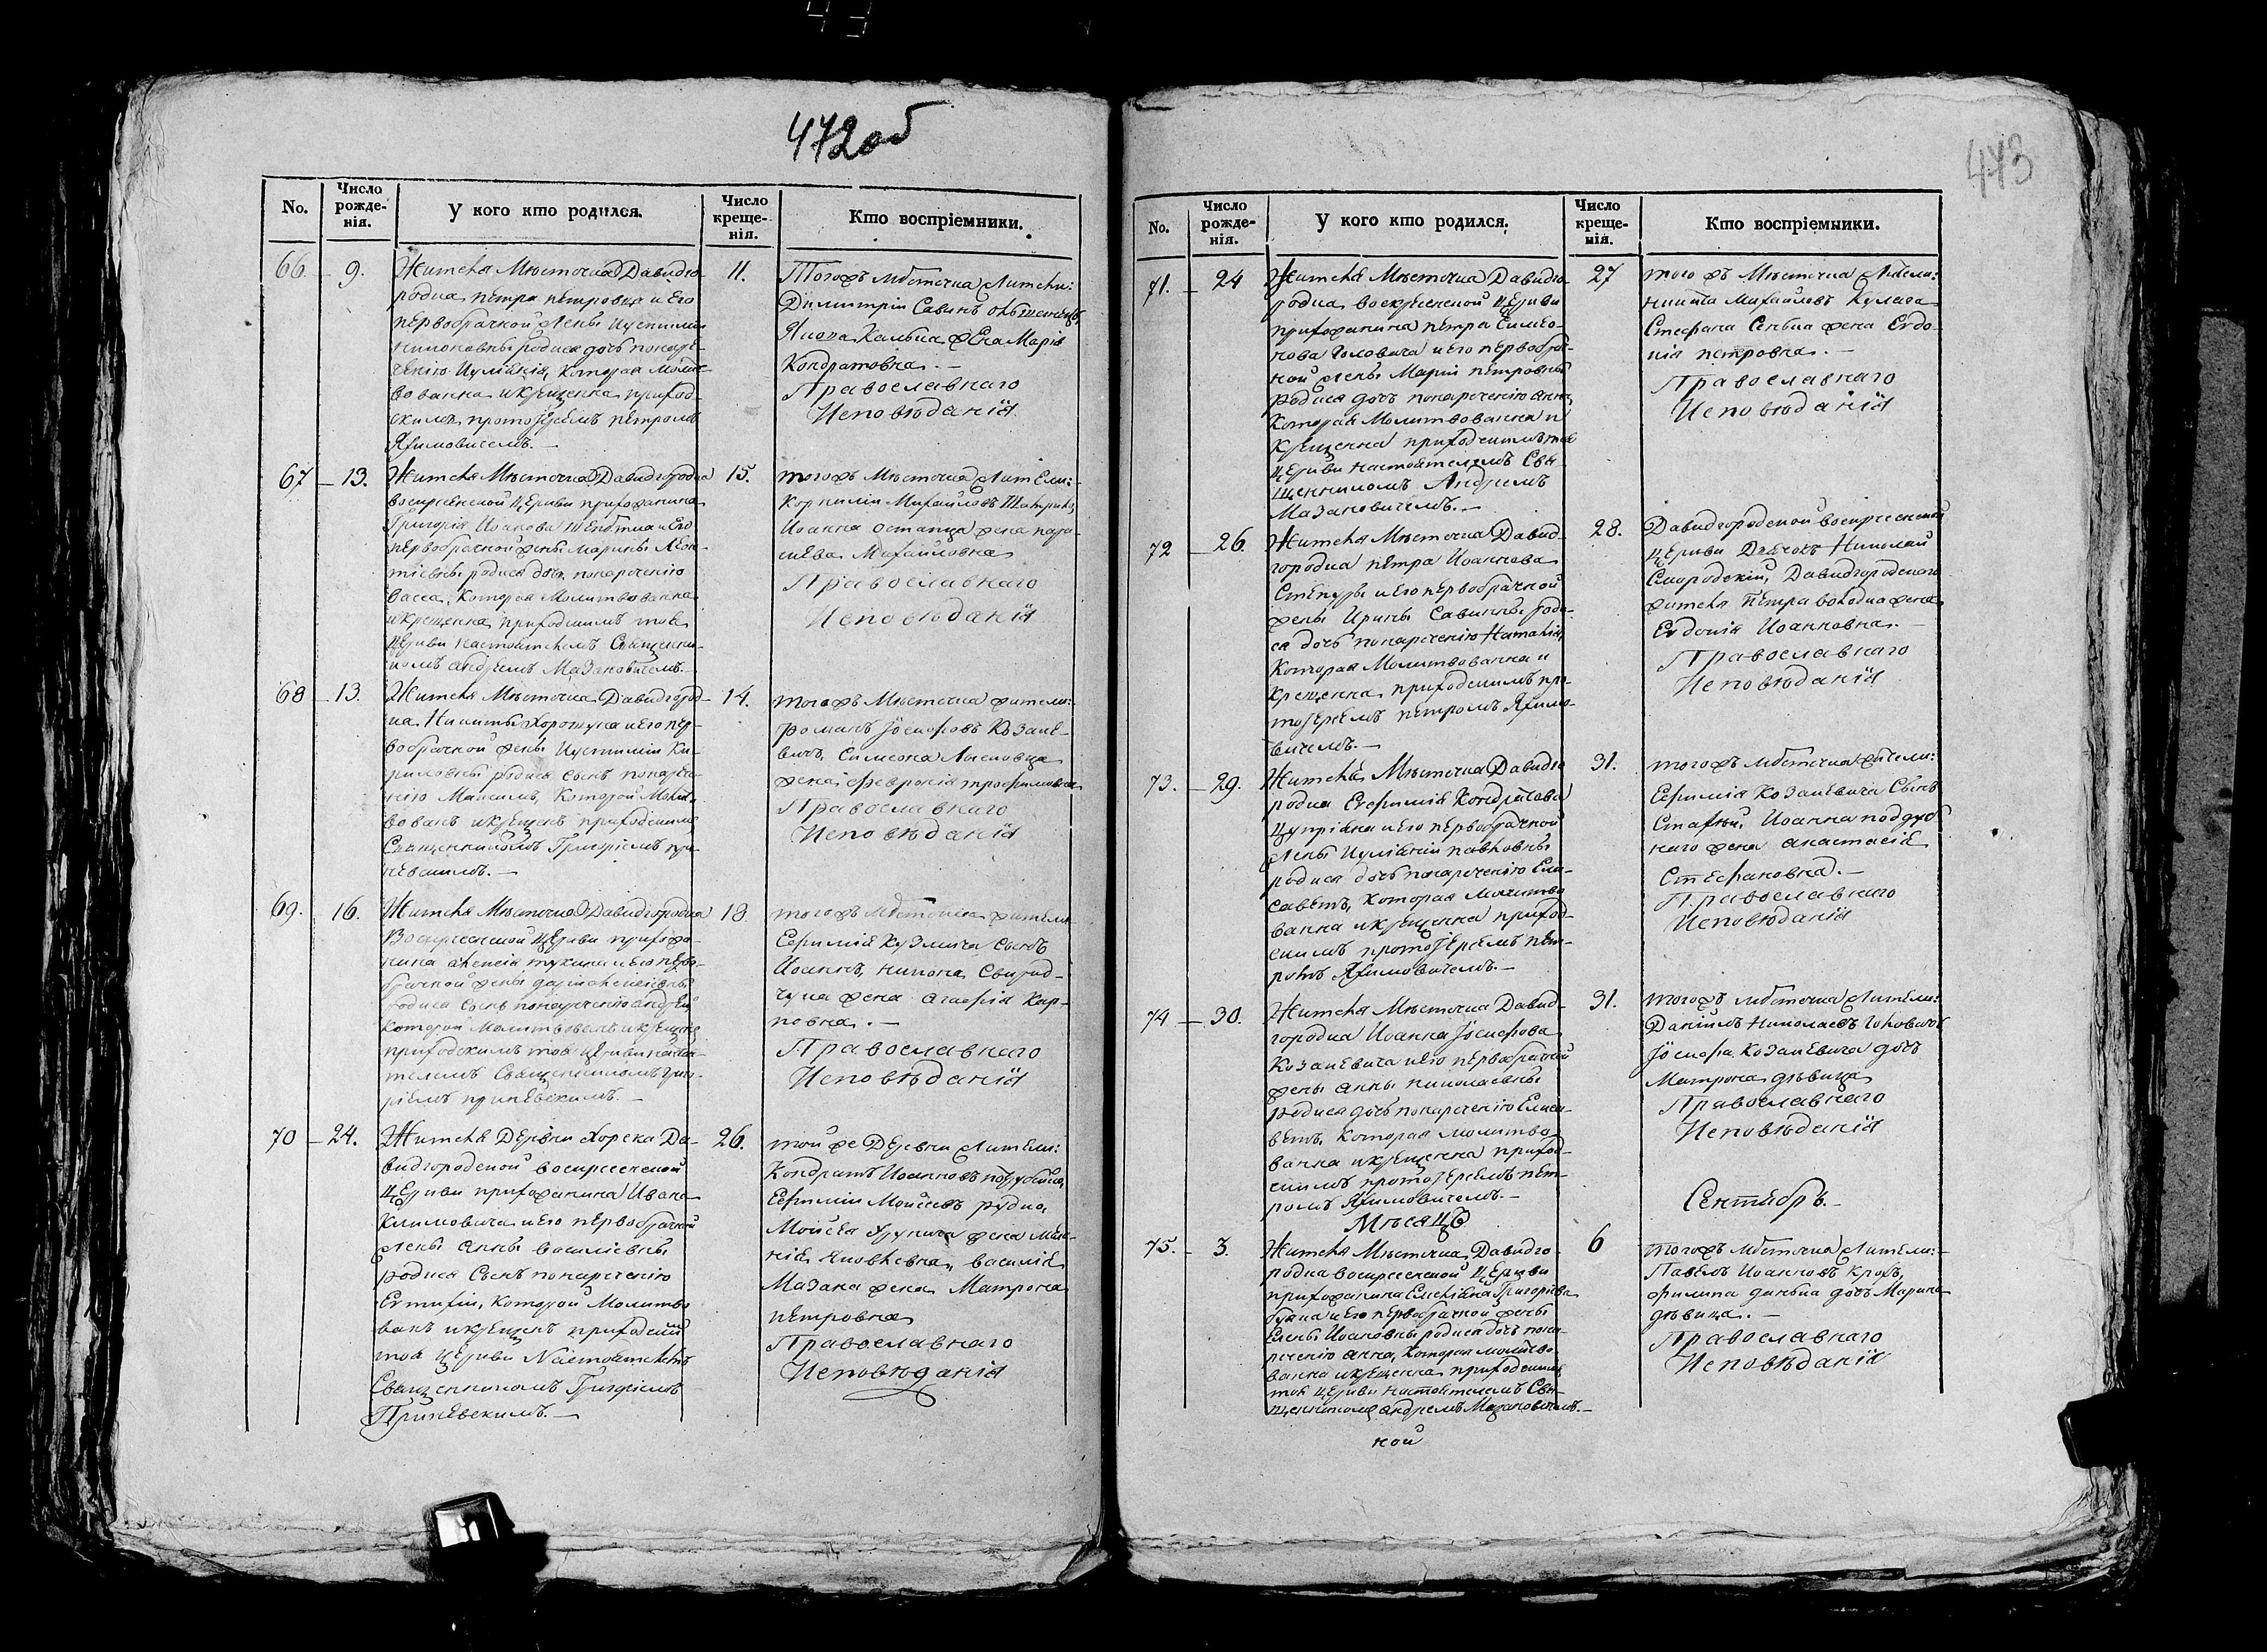 472об
No.
Число рожде-нія.
У кого кто родился.
Число креще-нія.
Кто воспріемники.
66. 9.
Жителя Мѣстечка Давидго-
родка Петра Петровца и Его
первобрачной жены
родися дочь по наре-
ченію Иуліанія, которая молит-
вованна и крещенна приход-
скимъ протоіереемъ Петромъ
Яхимовичемъ. —
11.
Тогожъ мѣстечка жители:
Димитрій Савинъ
Якова жена Марія
Кондратовна. —
Православнаго
Исповѣданія
67 13.
Жителя Мѣстечка Давидгородка
воскресенской церкви прихожанина
Григорія Иоанова и Его
первобрачной жены Марины Леон-
тіевны родися дочь, по нареченію
Васса, которая Молитвованна
и крещенна приходскимъ тоя
церкви настоятелемъ Священни-
комъ Андреемъ Мазановичемъ. —
15.
тогожъ Мѣстечка жители:
Корнилій Михайловъ
Иоанна Остапца жена пара-
скева Михайловна
Православнаго
Исповѣданія
68 13.
Жителя Мѣстечка Давидгород-
ка Никиты Хоружука и его пер-
вобрачной жены Иустиніи Ки-
риловны родися сынъ по наре-
нію Максимъ, Который Молит-
вованъ и крещенъ приходскимъ
Священникомъ Григоріемъ При-
невскимъ. —
14.
тогожъ Мѣстечка жители:
Романъ Іосифовъ Козаке-
вичъ, Симеона Лисовца
жена Февронія трофимовна
Православнаго
Исповѣданія
69. 16.
Жителя Мѣстечка Давидгородка
Воскресенской Церкви прихожа-
нина и его перво-
брачной жены
родися сынъ по нареченію Андрей
который Молитвованъ и крещенъ
приходскимъ тоя церкви настоя-
телемъ Священникомъ Григо-
ріемъ Приневскимъ. —
18
тогожъ мѣстечка жители
Ефимія Кузмича сынъ
Иоаннъ, никона Свирид-
чука жена Агафія Кар-
повна. —
Православнаго
Исповѣданія
70 24.
Жителя Деревни Хорска Да-
видгородской воскресенской
Церкви прихожанина Ивана
Климовича и его первобрачной
жены Анны василіевны
родися Сынъ по нареченію
Евтихій, которой Молитво-
ванъ и крещенъ приходскимъ
тоя церкви Настоятелемъ
Священникомъ Григоріемъ
Приневскимъ. —
26.
той же Деревни жители:
Кондратъ Иоанновъ
Ефимій Моисеевъ рудко,
Моисея жена Мела-
нія Яковлевна, василія
Мазана жена Матрона
петровна
Православнаго
Исповѣданія
473
No.
Число рожде-нія.
У кого кто родился.
Число креще-нія.
Кто воспріемники.
71. 24
Жителя Мѣстечка Давидго-
родка воскресенской Церкви
прихожанина петра Симео-
нова Головача и его первобрач-
ной жены Маріи петровны
родися дочь по нареченію Анна
Которая Молитвованна и
Крещенна приходскимъ тоя
церкви настоятелемъ Свя-
щенникомъ Андреемъ
Мазановичемъ. —
27
того жъ Мѣстечка жители:
никита Михайловъ Кулага
Стефана Сенька жена Евдо-
кія петровна. —
Православнаго
Исповѣданія
72 26.
Жителя Мѣстечка Давид-
городка петра Иоаннова
Стешуры и его первобрачной
жены Ирины Савины роди-
ся дочь по нареченію Наталія,
Которая Молитвованна и
Крещенна приходскимъ про-
тоіереемъ петромъ Яхимо-
вичемъ. —
28.
Давидгородской воскресенской
церкви Дьячокъ Николай
Смородскій, Давидгородскаго
жителя Петра володка жена
Евдокія Иоанновна. —
Православнаго
Исповѣданія
73. 29.
Жителя Мѣстечка Давидго-
родка Евфимія Кондратова
и его первобрачной
жены Иуліаніи павловны
родися дочь по нареченію Ели-
саветъ, которая молитво-
ванна и крещенна приход-
скимъ протоіереемъ пет-
ромъ Яхимовичемъ. —
31.
тогожъ мѣстечка жители:
Ефимія Козакевича Сынъ
Стахій, Иоанна поддуб-
наго жена Анастасія
Стефановна. —
Православнаго
Исповѣданія
74 30.
Жителя Мѣстечка Давид-
городка Иоанна Іосифова
Козакевича и его первобрачной
жены Анны николаевны
родися дочь по нареченію Елиса-
ветъ, которая молитво-
ванна и крещенна приход-
скимъ протоіереемъ пет-
ромъ Яхимовичемъ. —
31.
тогожъ мѣстечка жители:
Даніилъ Николаевъ Головачъ
Іосифа Козакевича дочь
Матрона дѣвица
Православнаго
Исповѣданія
Мѣсяцъ Сентябрь. —
75. 3.
Жителя Мѣстечка Давидго-
родка воскресенской Церкви
прихожанина Емеліяна Григоріева
и его первобрачной жены
Елены Иоановны родися дочь по на-
реченію Анна, Которая молитво-
ванна и крещенна приходскимъ
тоя церкви настоятелемъ Свя-
щенникомъ Андреемъ Мазановичемъ. —
6
тогожъ мѣстечка жители:
Павелъ Иоанновъ Кролъ,
филипа дочь Марина
дѣвица. —
Православнаго
Исповѣданія
ной